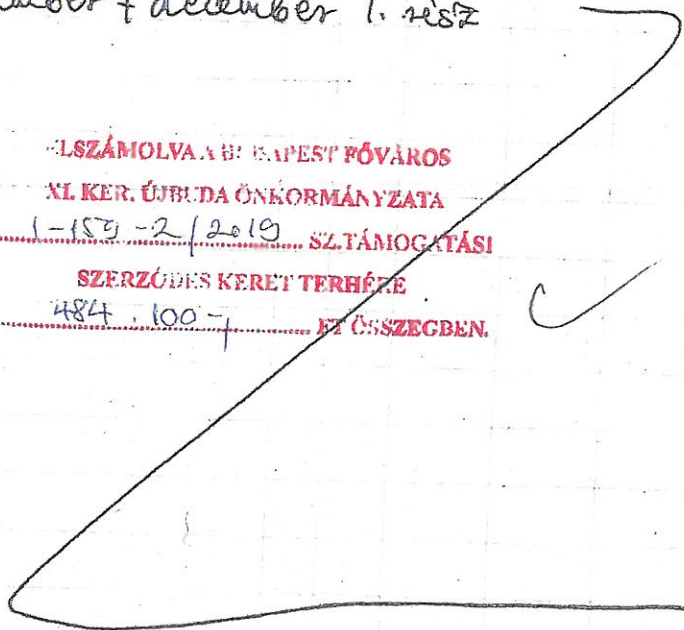 december 1. rész
ELSZÁMOLVA A BUDAPEST FŐVÁROS
XI. KER. ÚJBUDA ÖNKORMÁNYZATA
1-159-2/2019 SZ. TÁMOGATÁSI
SZERZŐDÉS KERET TERHÉRE
484.100-, FT ÖSSZEGBEN.